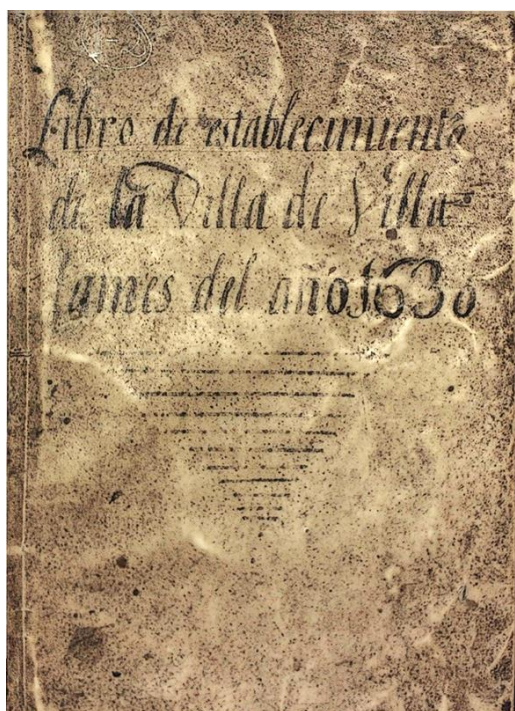 Libro de establecimiento
de la Villa de Villa
fames del año 1630